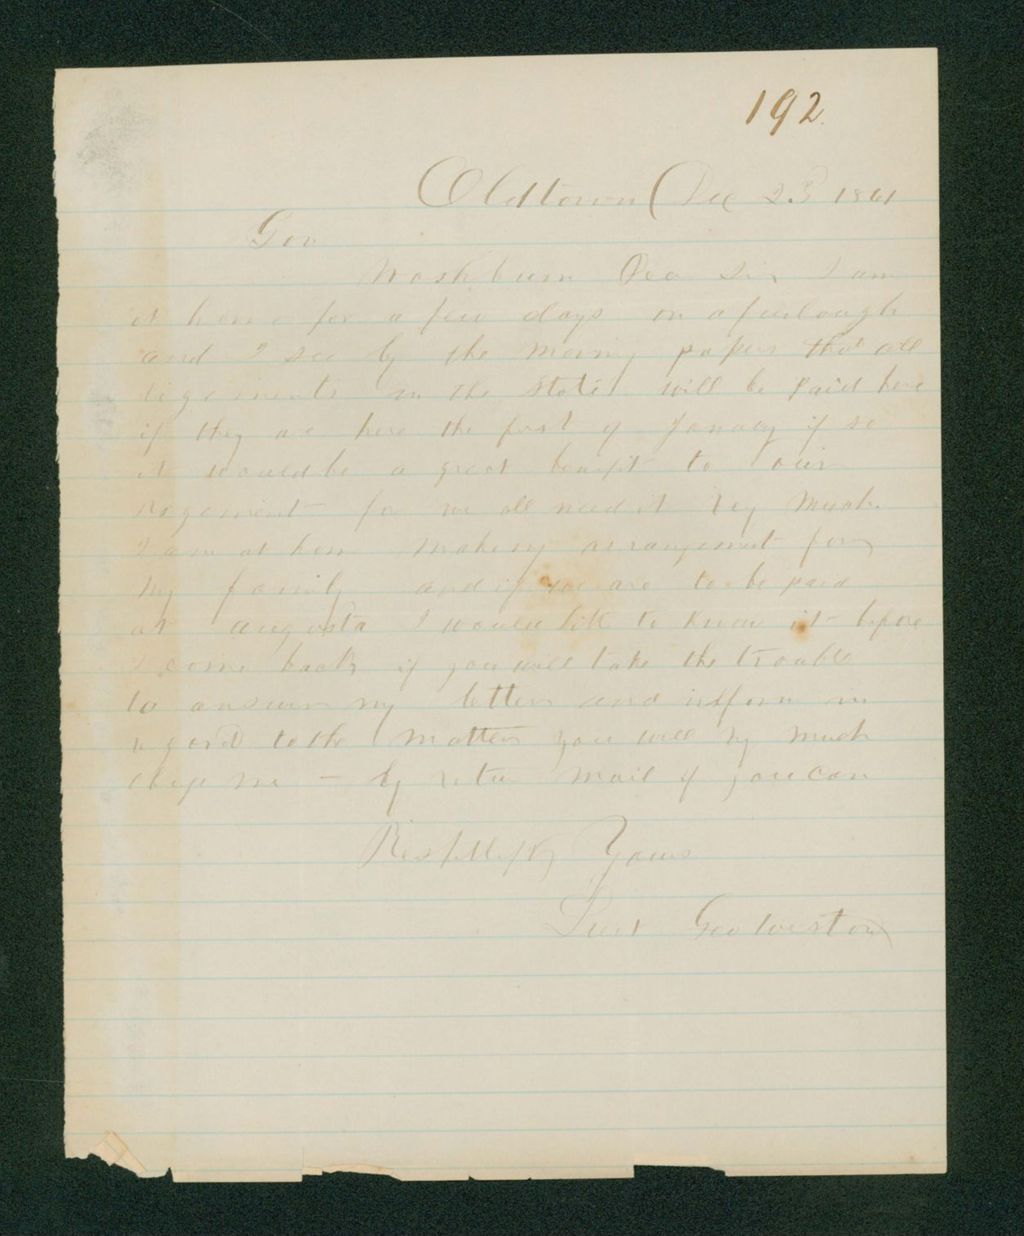 192
Oldtown Dec 23 1861
Gov
Washburn Dea Sir I am
at home for a few days on a furlough
and I see by the morning papers that all
regements in the State will be paid here
if they are here the first of January if so
it would be a great benefit to our
regement for we all need it very much.
I am at home making arrangement for
my family and if we are to be paid
at augusta I would like to know it before
I come back if you will take the trouble
to answer my letter and inform in
regard to the matter you will very much
oblige me — by return mail if you can
Yours
Lieut Geo Weston